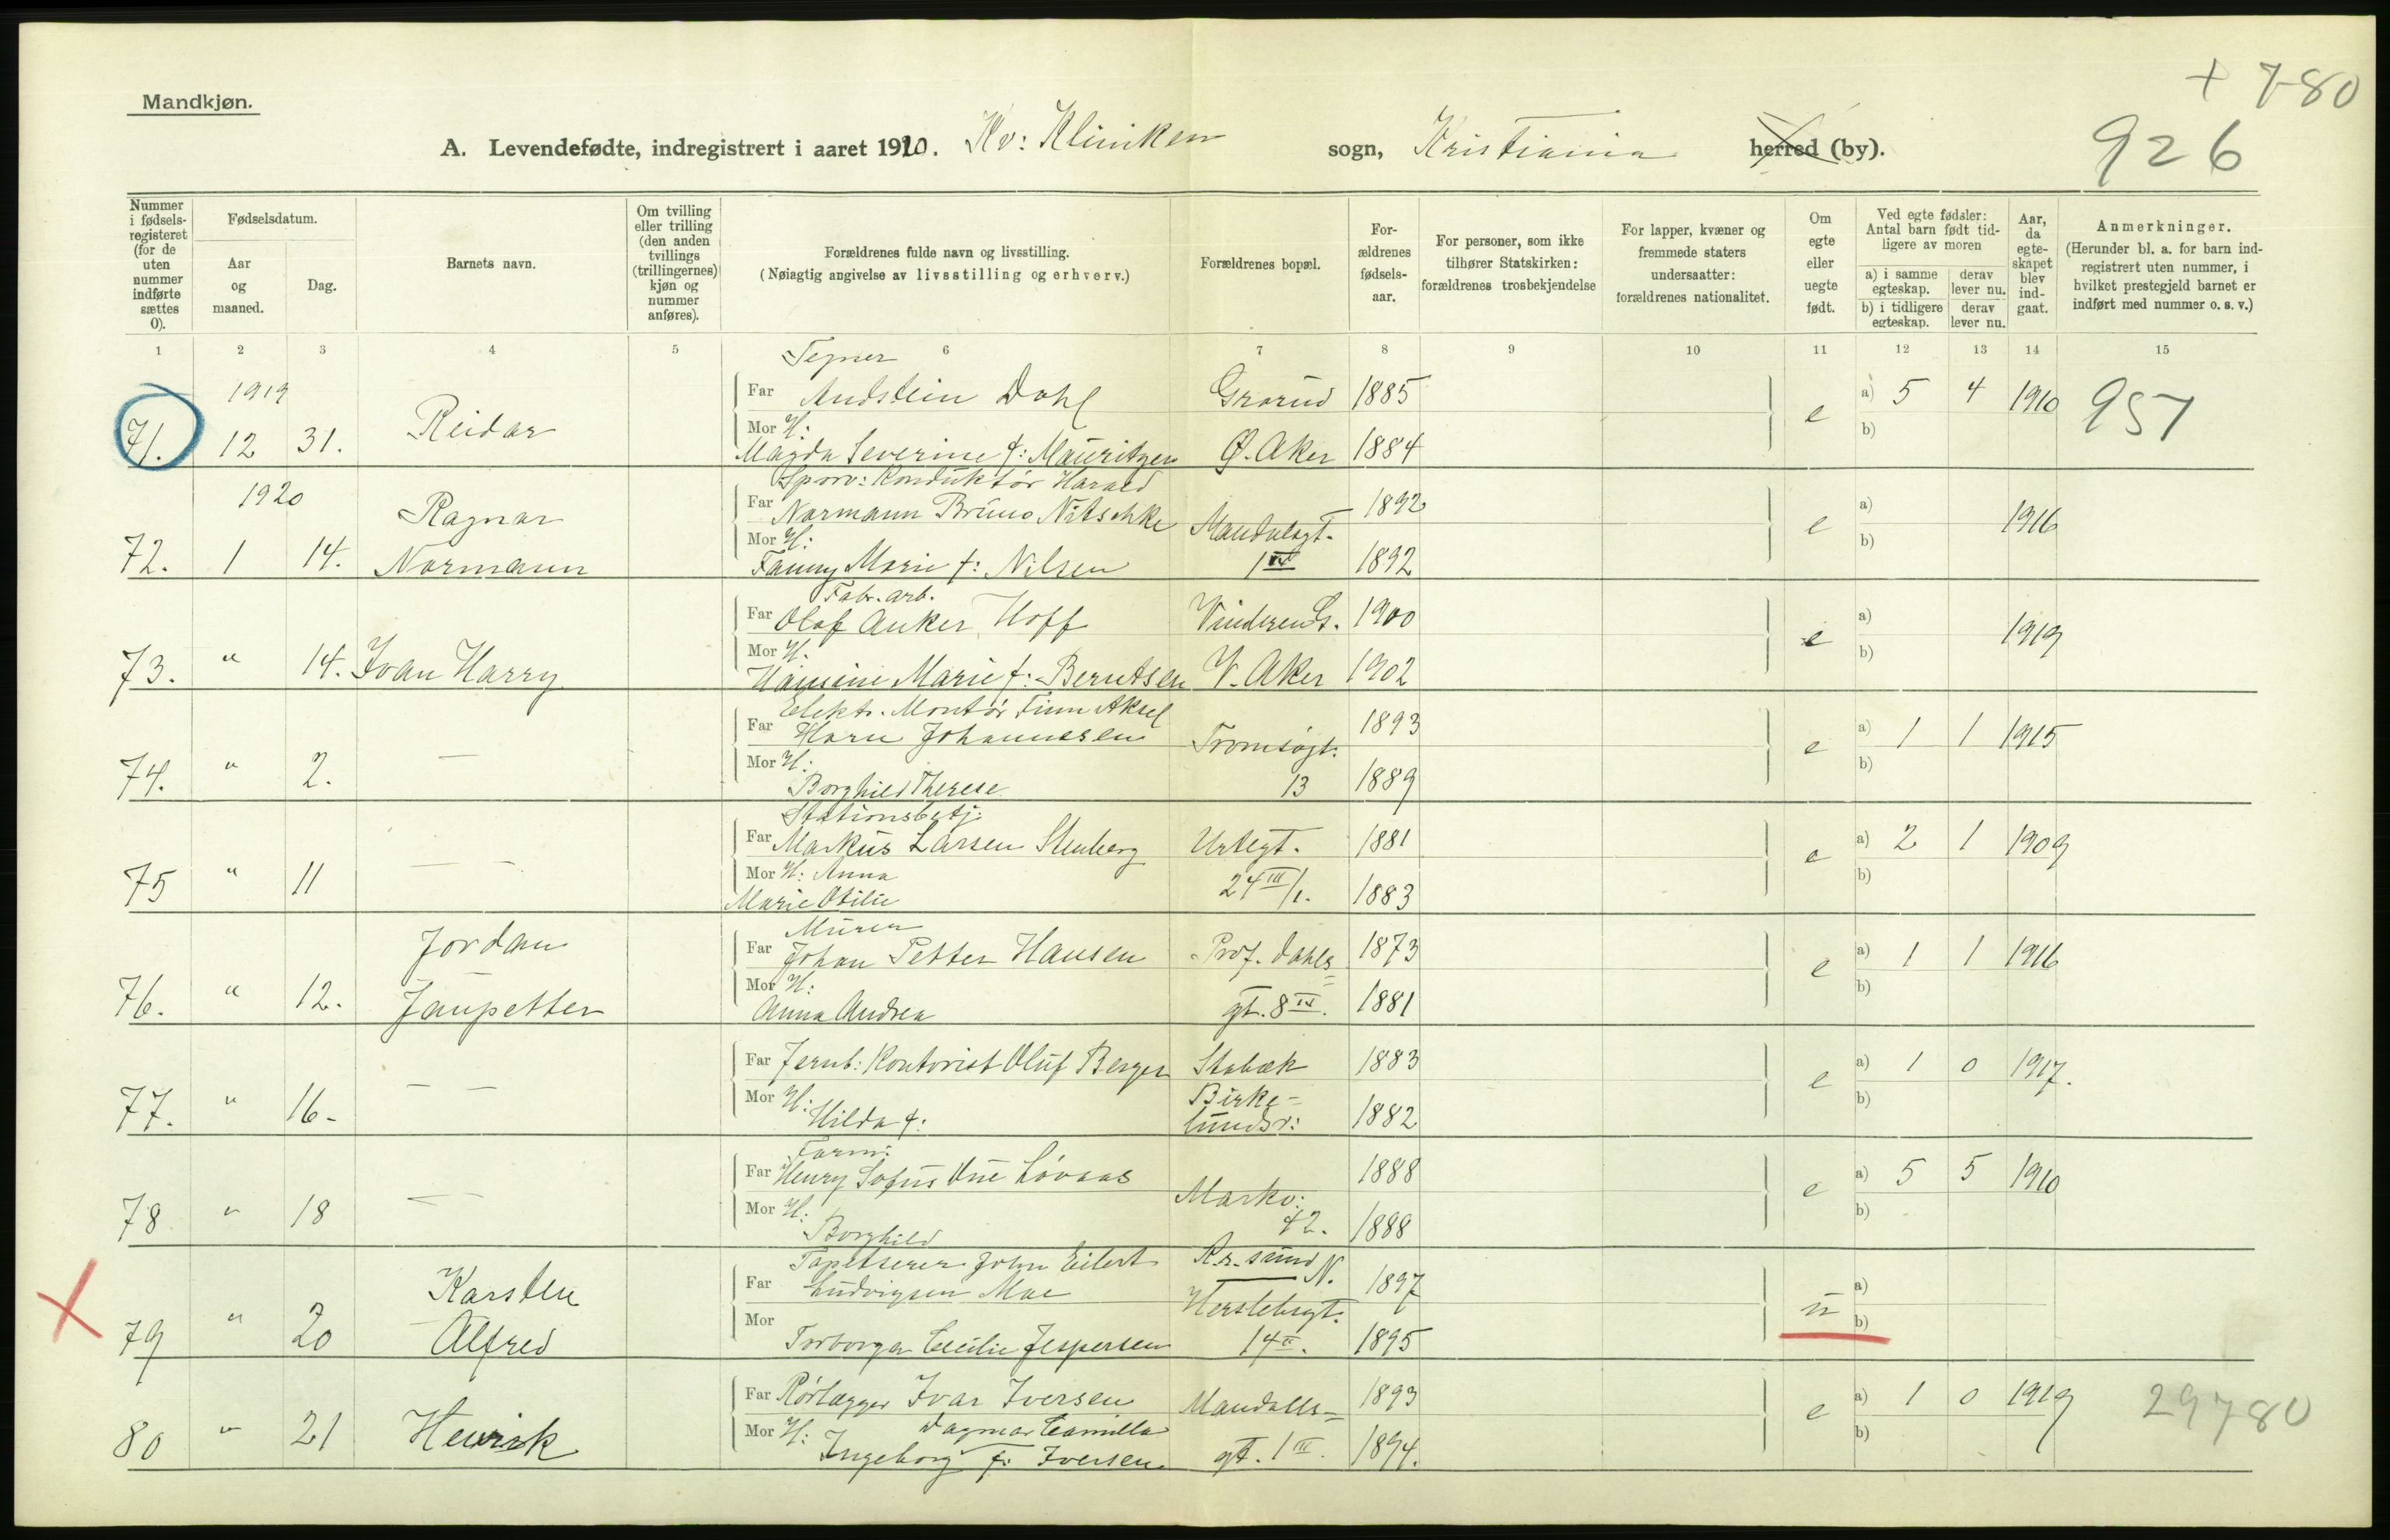 + 7-80
Mandkjøn.
A. Levendefødte, indregistrert i aaret 1920. Kv: Kliniken sogn, Kristiania herred (by).
926
Nummer i fødsels-registeret (for de uten nummer indførte sættes 0).
Fødselsdatum.
Aar og maaned.
Dag.
Barnets navn.
Om tvilling eller trilling (den anden tvillings (trillingernes) kjøn og nummer anføres).
Forældrenes fulde navn og livsstilling.
(Nøiagtig angivelse av livsstilling og erhverv.)
Forældrenes bopæl.
For-ældrenes fødsels-aar.
For personer, som ikke tilhører Statskirken: forældrenes trosbekjendelse
For lapper, kvæner og fremmede staters undersaatter: forældrenes nationalitet.
Om egte eller uegte født.
Ved egte fødsler: Antal barn født tid-ligere av moren
a) i samme egteskap. derav lever nu.
b) i tidligere egteskap. derav lever nu.
Aar, da egte-skapet blev ind-gaat.
Anmerkninger.
(Herunder bl. a. for barn ind-registrert uten nummer, i hvilket prestegjeld barnet er indført med nummer o. s. v.)
1 2 3 4 5 6 7 8 9 10 11 12 13 14 15
Tegner
1919 Far Andstein Dahl Grorud 1885 a) 5 4 1910 957
71. 12 31. Reidar e
Mor H: b)
Magda Severine f: Mauritzen Ø. Aker 1884
Sporv: Konduktør Harald
1920 Far Normann Bruno Nitschke 1892 a) 1916
Ragnar Mandalsgt. e
Mor H: b)
72. 1 14. Normann Fanny Marie f: Nilsen 1 1892
Fabr. arb.
Far Olaf Anker Hoff Vinderen 1900 a) 1919
Mor H. e b)
73. " 14. Ivan Harry Hansine Marie f: Berntsen V. Aker 1902
Elektr. Montør Finn Aksel
Far Horn Johannessen Tromsøgt. 1893 e a) 1 1 1915
74. " 2. — Mor H: b)
Borghild Therese 13 1889
Stationsbetj:
Far Markus Larsen Stenberg Urtegt. 1881 e a) 2 1 1909
75 " 11 — — Mor H: Anna b)
Marie Otilie 24 III/1. 1883
Murer
Jordan Far Johan Petter Hansen Prof. Dahls 1873 e a) 1 1 1916
76. " 12. Janpetter Mor H: b)
Anna Andrea gt. 8 1881
Far Jernb: Kontorist Oluf Berger Stabæk 1883 e a) 1 0 1917.
77. " 16- — — Mor H: Birke- b)
Hilda f: lundsv: 1882
Form:
Far Henry Sofus Due Lövaas 1888 e a) 5 5 1910
78 " 18 — Mor H: Markv: b)
Borghild 42. 1888
Tapetserer John Eilert Kr.sund N.
Karsten Far Ludvigsen Moe 1897 u a)
79 " 20 Alfred Mor Herslebsgt. b)
Torborga Cecilie Jespersen 14 II. 1895
Far Rørlægger Ivar Iversen Mandalls- 1893 e a) 1 0 1919 29780
80 " 21 Henrik Mor H: Dagmar Camilla b)
Ingeborg f: Iversen gt. 1 III. 1894.